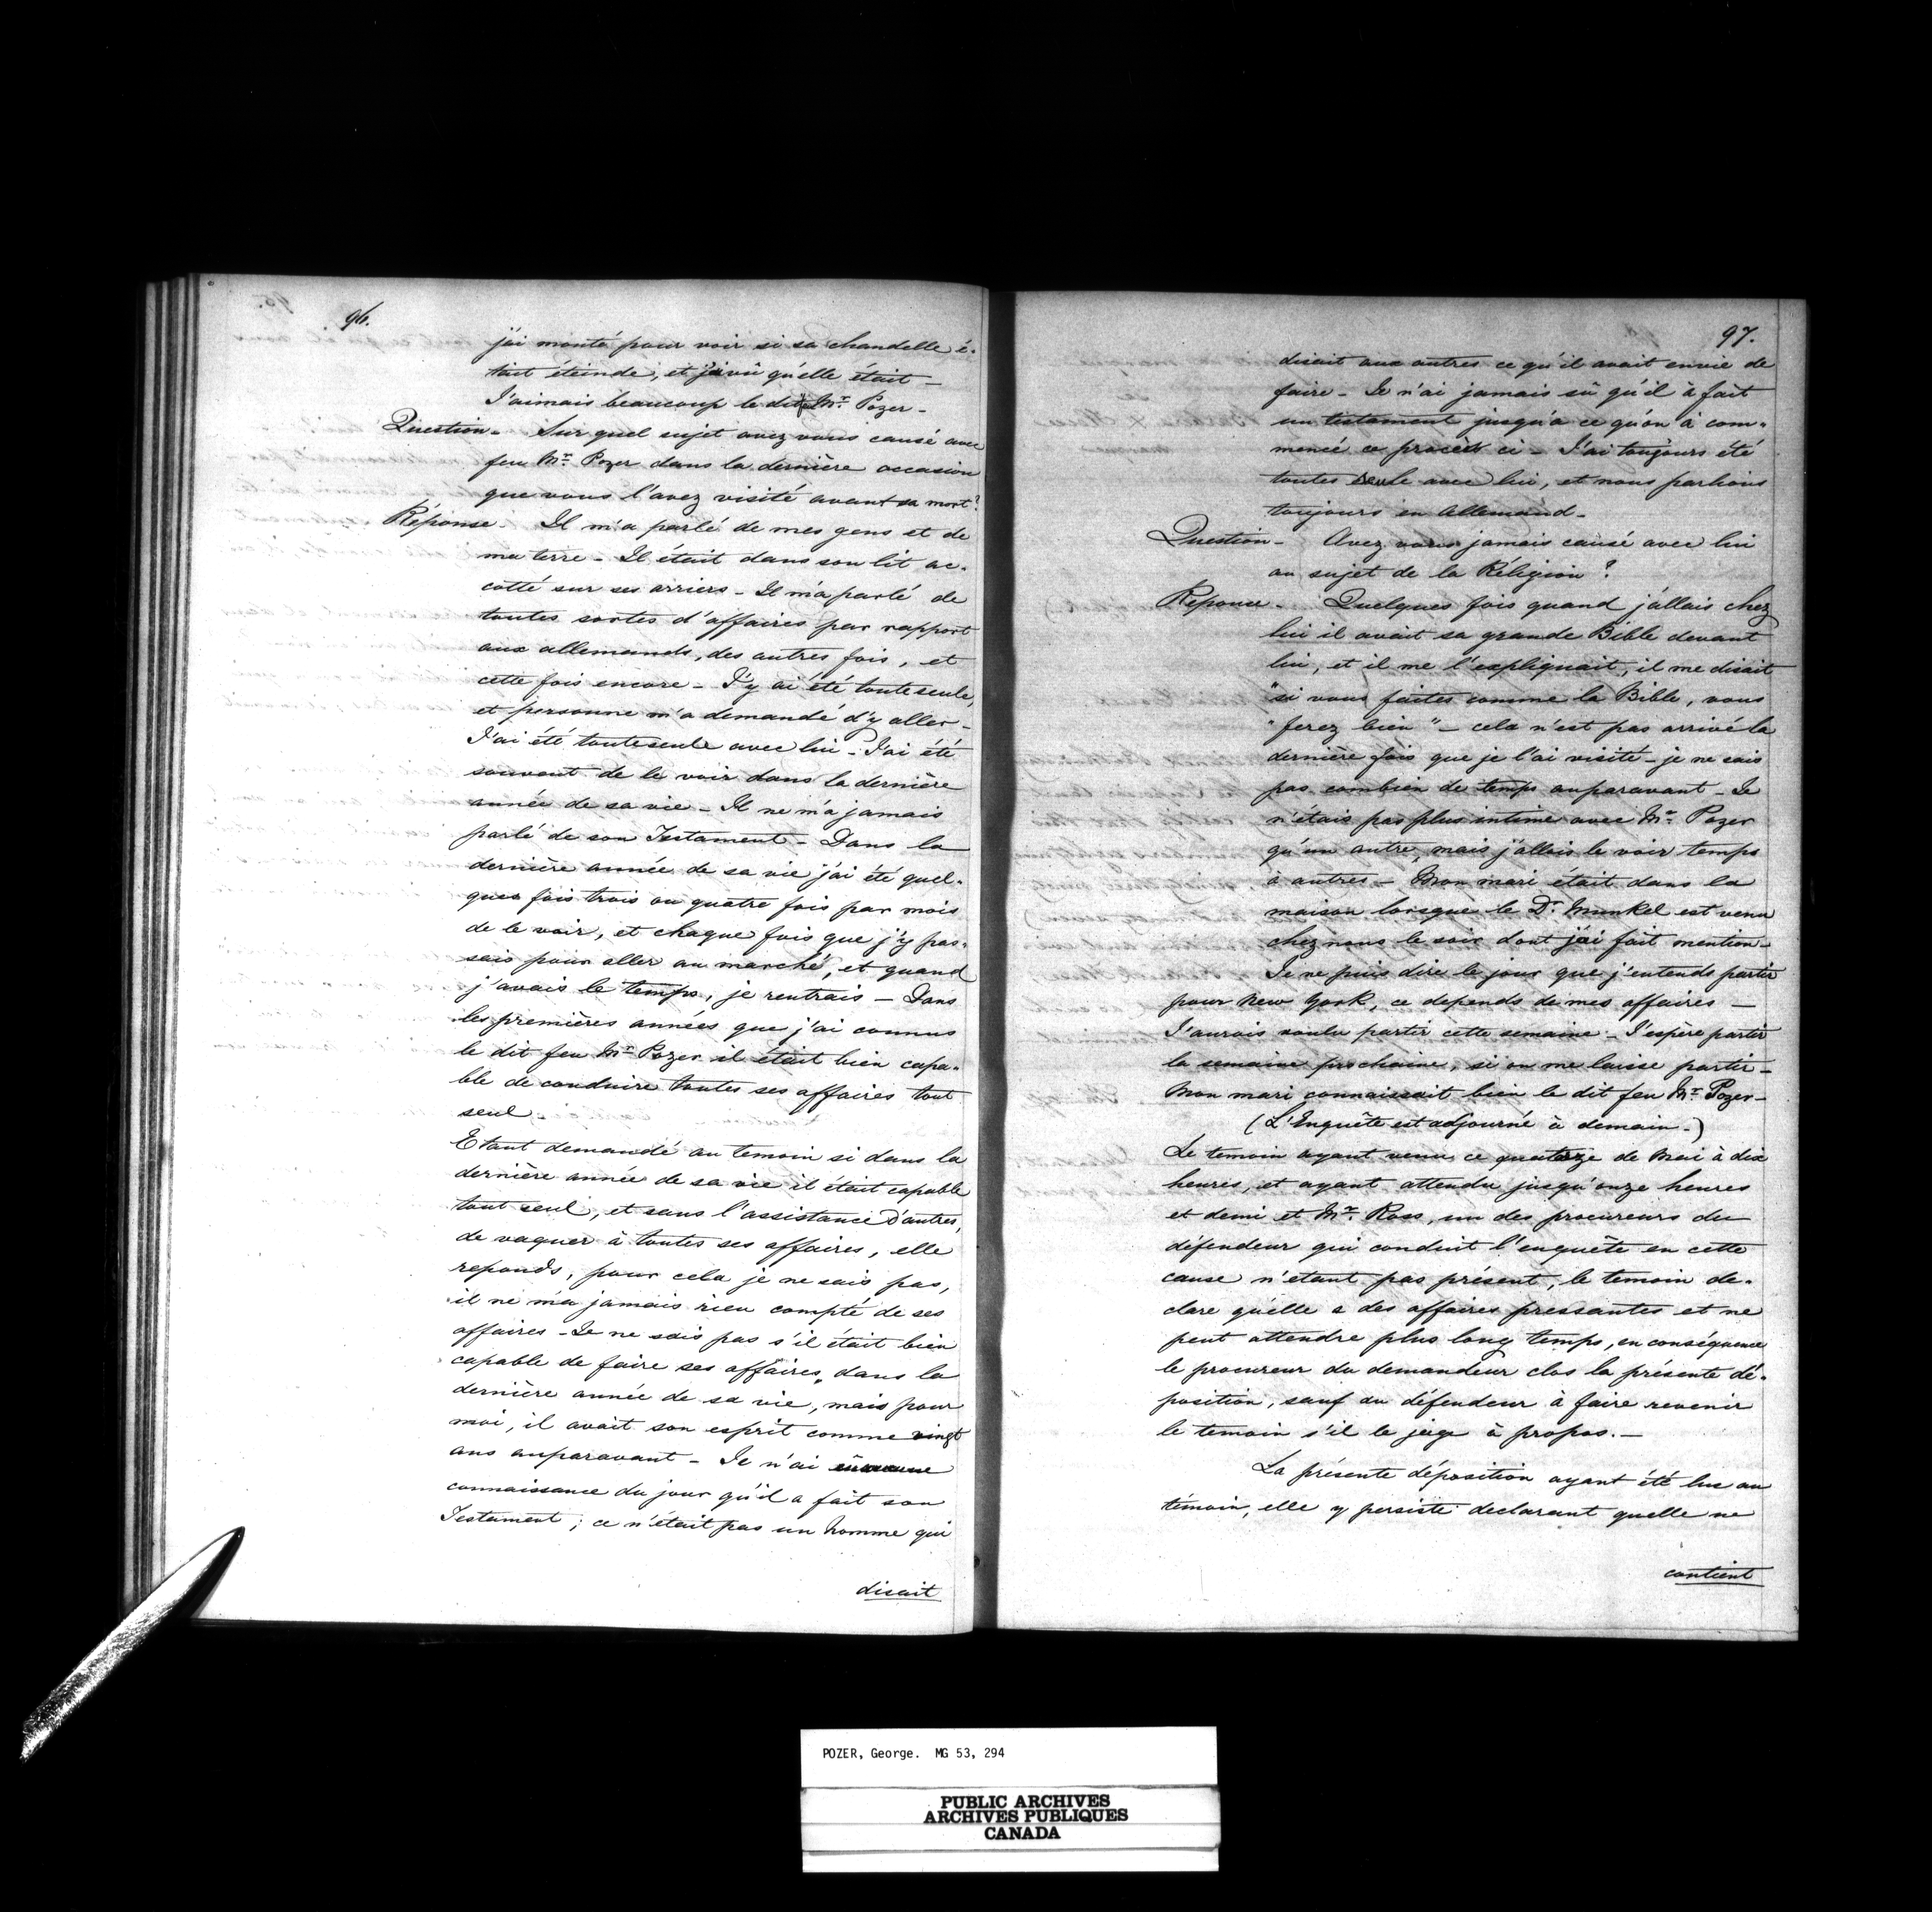 96.
j'ai monté pour voir si sa chandelle é-
tait éteinde, et j'ai vû qu'elle était —
J'aimais beaucoup le dit Mr. Pozer —
Question — Sur quel sujet avez vous causé avec
feu Mr. Pozer dans la dernière occasion
que vous l'avez visité avant sa mort?
Réponse — Il m'a parlé de mes gens et de
ma terre — Il était dans son lit ac-
cotté sur ses arriers — Il m'a parlé de
toutes sortes d'affaires par rapport
aux allemands, des autres fois, et
cette fois encore — J'y ai été toute seule,
et personne m'a demandé d'y aller —
J'ai été toute seule avec lui — J'ai été
souvent de le voir dans la dernière
année de sa vie — Il ne m'a jamais
parlé de son Testament — Dans la
dernière année de sa vie j'ai été quel-
ques fois trois ou quatre fois par mois
de le voir, et chaque fois que j'y pas-
sais pour aller au marché, et quand
j'avais le temps, je rentrais — Dans
les premières années que j'ai connus
le dit feu Mr. Pozer il était bien capa-
ble de conduire toutes ses affaires tout
seul —
Etant demandé au temoin si dans la
dernière année de sa vie il était capable
tout seul, et sans l'assistance d'autres,
de vaquer à toutes ses affaires, elle
reponds, pour cela je ne sais pas,
il ne m'a jamais rien compté de ses
affaires — Je ne sais pas s'il était bien
capable de faire ses affaires, dans la
dernière année de sa vie, mais pour
moi, il avait son esprit comme vingt
ans auparavant — Je n'ai aucune
connaissance du jour qu'il a fait son
Testament; ce n'était pas un homme qui
disait
97.
disait aux autres ce qu'il avait envie de
faire — Je n'ai jamais sû qu'il à fait
un testament jusqu'a ce qu'on à com-
mencé ce procèst ci — J'ai toujours été
toutes seule avec lui, et nous parlions
toujours en Allemand —
Question — Avez vous jamais causé avec lui
au sujet de la Réligion?
Reponse — Quelques fois quand j'allais chez
lui il avait sa grande Bible devant
lui, et il me l'expliquait, il me disait
"si vous faites comme la Bible, vous
"ferez bien" — cela n'est pas arrivé la
dernière fois que je l'ai visité — je ne sais
pas combien de temps auparavant — Je
n'étais pas plus intime avec Mr. Pozer
qu'un autre, mais j'allais le voir temps
à autres — Mon mari était dans la
maison lorsque le Dr. Munkel est venu
chez nous le soir dont j'ai fait mention —
Je ne puis dire le jour que j'entends partir
pour New York, ce depends de mes affaires —
J'aurois voulu partir cette semaine — J'espère partir
la semaine prochaine, si on me laisse partir —
Mon mari connaissait bien le dit feu Mr. Pozer —
(L'Enquête est adjourné à demain —)
Le temoin ayant venu ce quatorze de Mai à dix
heures, et ayant attendu jusqu'onze heures
et demi et Mr. Ross, un des procureurs du
défendeur qui conduit l'enquête en cette
cause n'etant pas présent, le temoin de-
clare qu'elle a des affaires pressantes et ne
peut attendre plus long temps, en conséquence
le procureur du demandeur clos la présente dé-
position, sauf au défendeur à faire revenir
le temoin s'il le juge à propos. —
La présente déposition ayant été lue au
témoin, elle y persiste declarant quelle ne
contient
POZER, George. MG 53, 294
PUBLIC ARCHIVES
ARCHIVES PUBLIQUES
CANADA